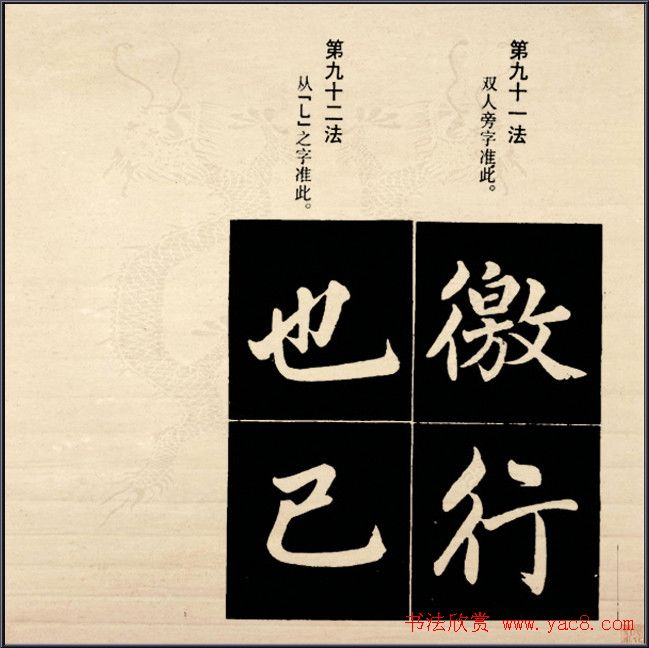 第九十一法
双人旁字准此。
徼行
第九十二法
从「乚」之字准此。
也已
书法欣赏 www.yac8.com